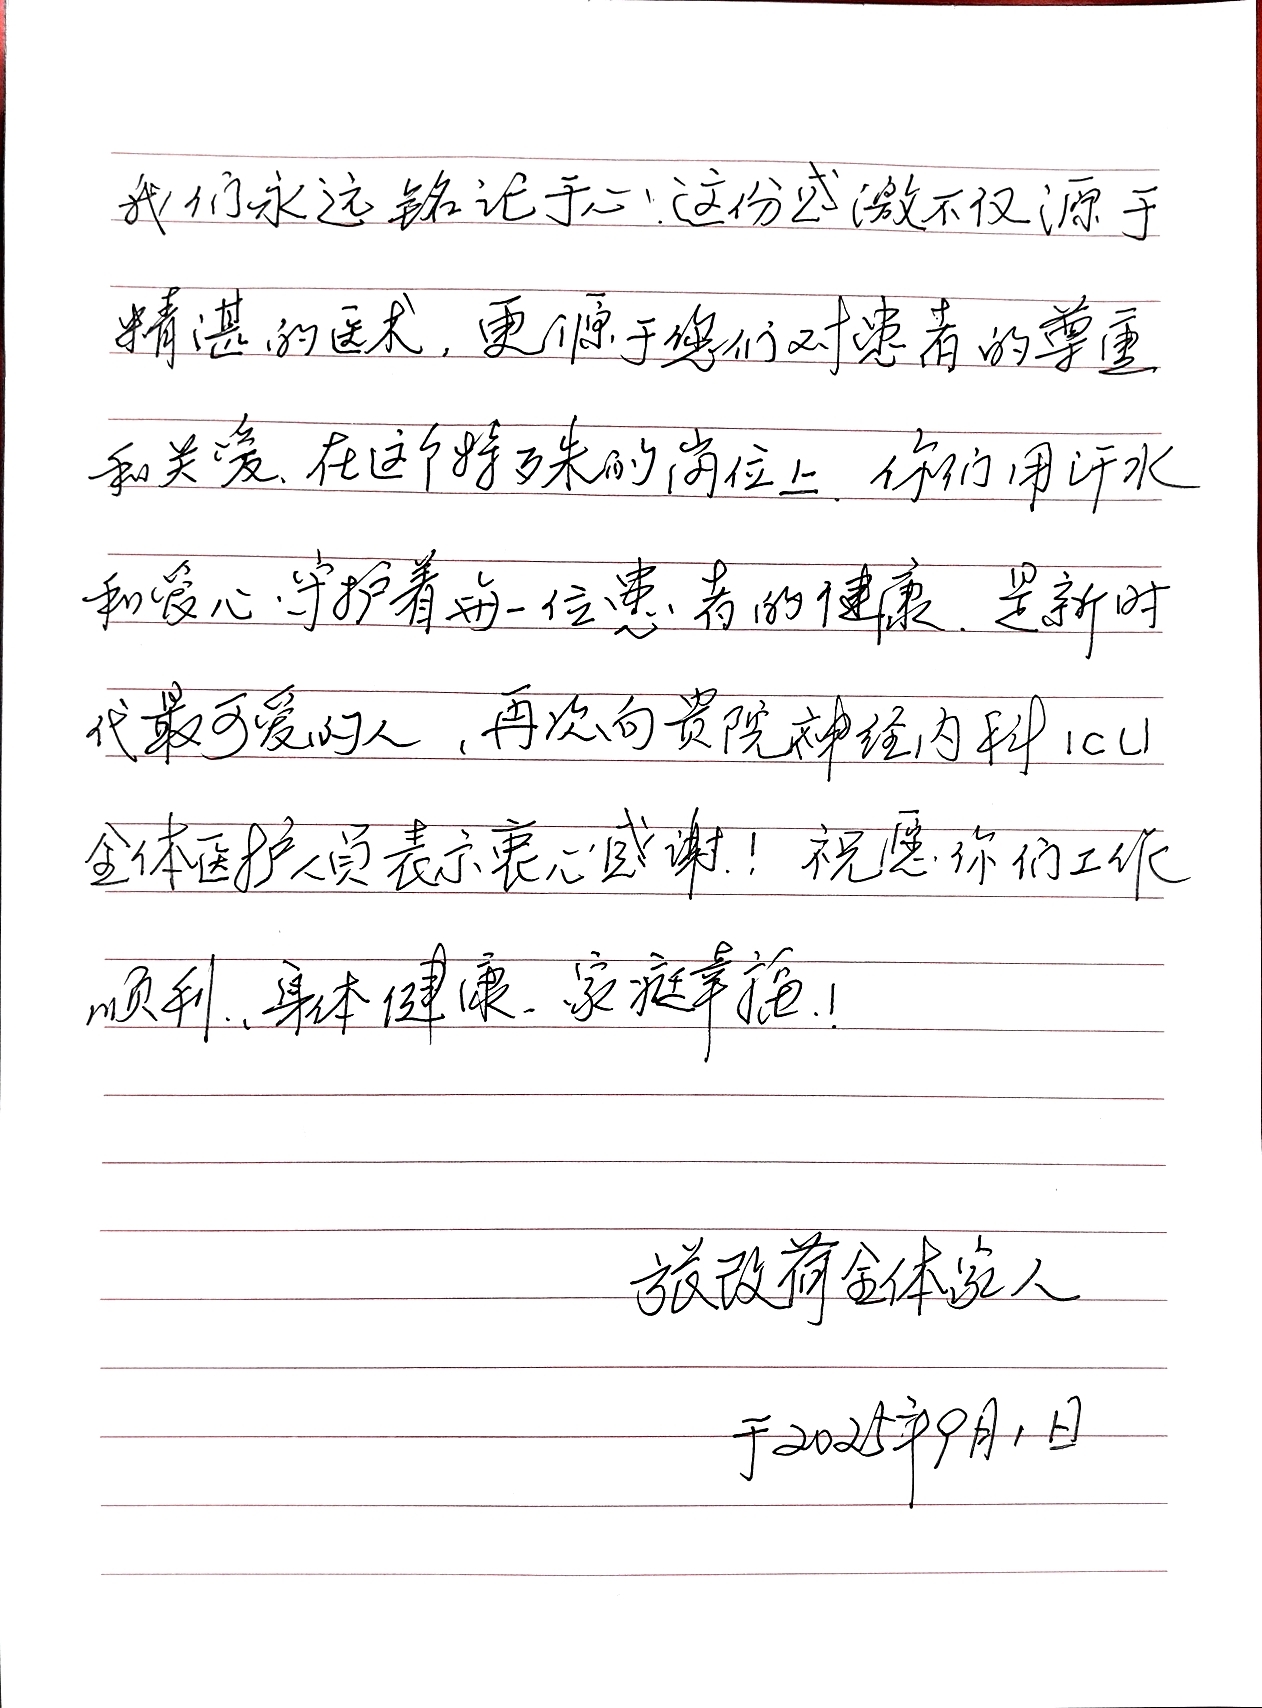 我们永远铭记于心.这份感激不仅源于
精湛的医术，更源于您们对患者的尊重
和关爱、在这个特殊的岗位上.你们用汗水
和爱心守护着每一位患者的健康.是新时
代最可爱的人,再次向贵院神经内科ICU
全体医护人员表示衷心感谢！祝愿你们工作
顺利.、身体健康、家庭幸福！
改荷全体家人
于2025年9月1日